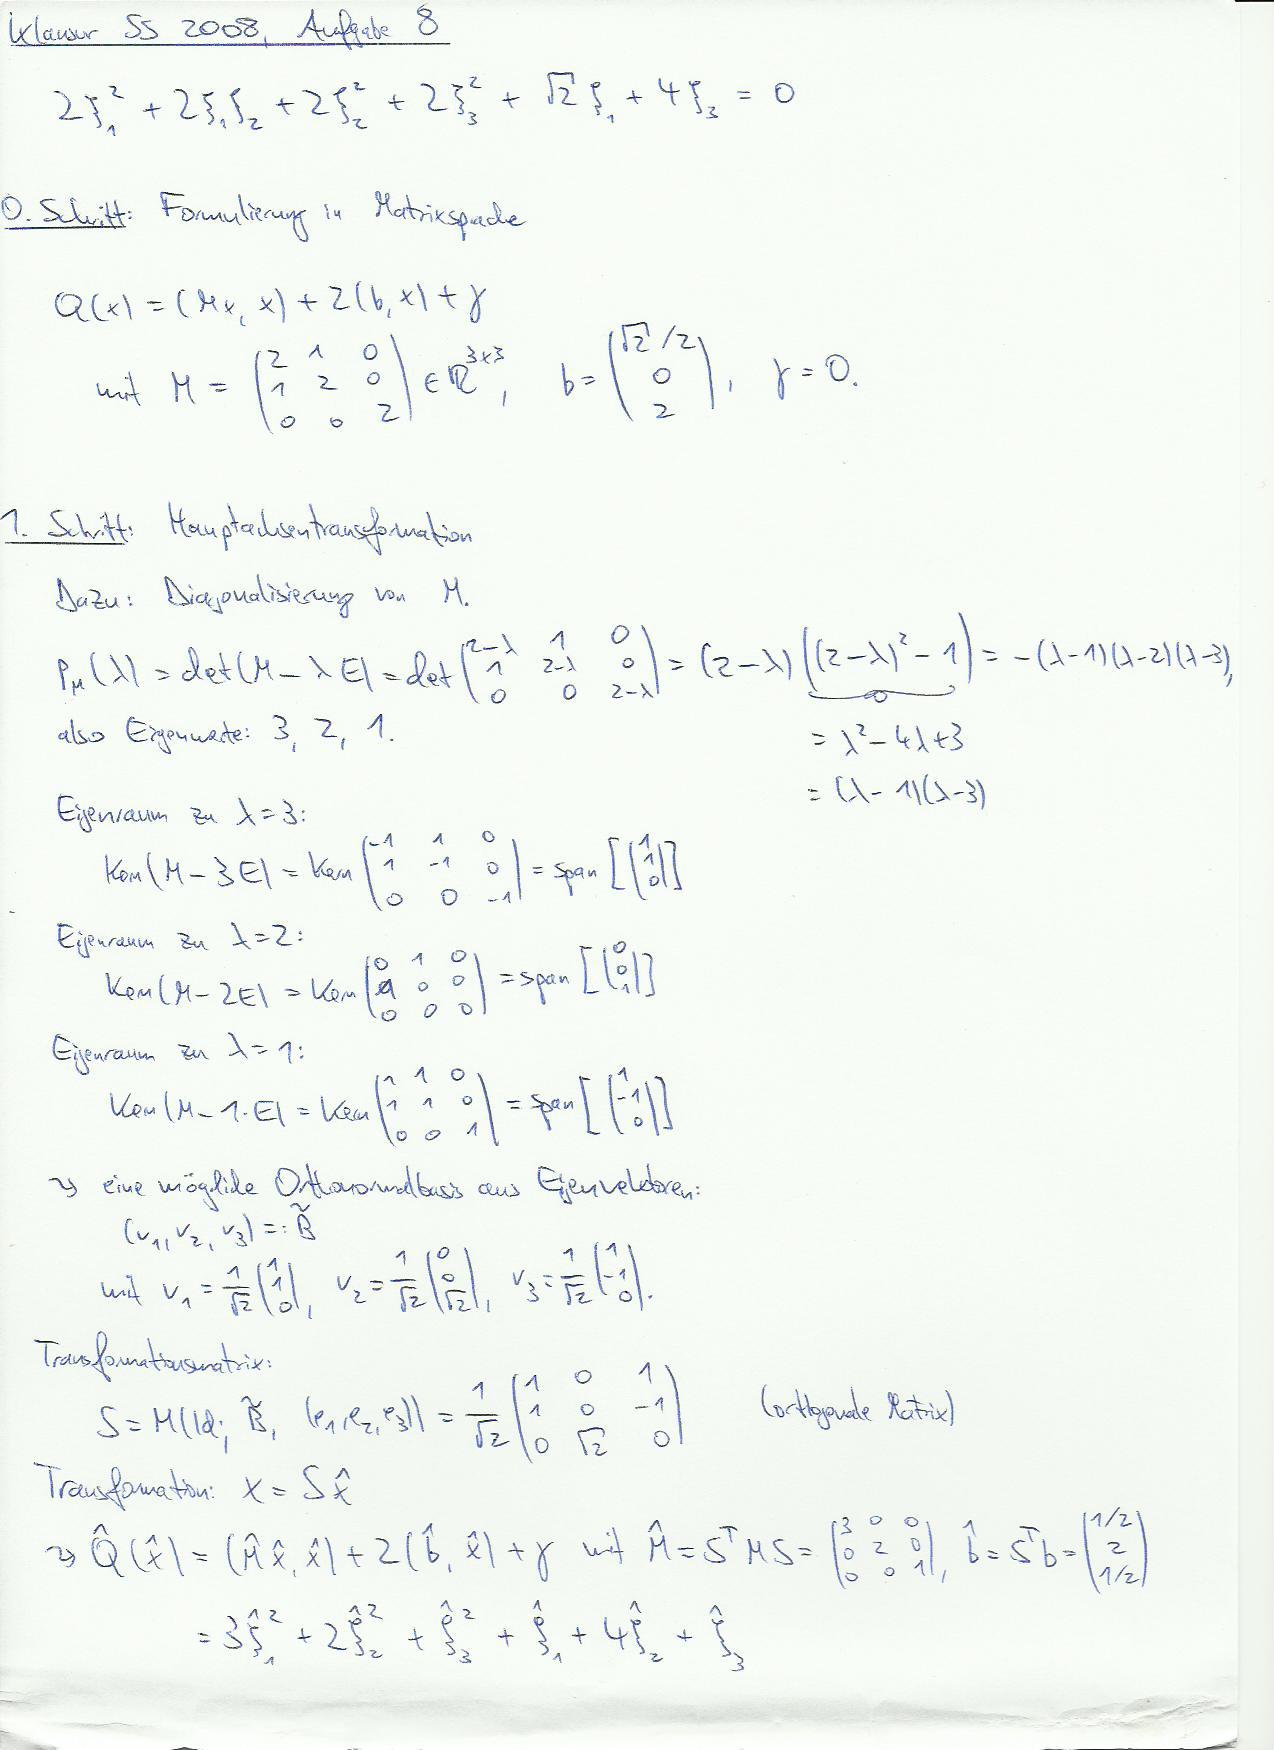 Klausur SS 2008, Aufgabe 8
2ξ₁² + 2ξ₁ξ₂ + 2ξ₂² + 2ξ₃² + √2 ξ₁ + 4ξ₃ = 0
0. Schritt: Formulierung in Matrixsprache
Q(x) = (Mx, x) + 2(b, x) + γ
mit M = (2 1 0; 1 2 0; 0 0 2) ∈ ℝ³ˣ³, b = (√2/2; 0; 2), γ = 0.
1. Schritt: Hauptachsentransformation
Dazu: Diagonalisierung von M.
p_M(λ) = det(M − λE) = det(2−λ 1 0; 1 2−λ 0; 0 0 2−λ) = (2−λ)((2−λ)² − 1) = −(λ−1)(λ−2)(λ−3),
also Eigenwerte: 3, 2, 1.
= λ² − 4λ + 3
= (λ − 1)(λ − 3)
Eigenraum zu λ = 3:
Kern(M − 3E) = Kern(−1 1 0; 1 −1 0; 0 0 −1) = span[(1; 1; 0)]
Eigenraum zu λ = 2:
Kern(M − 2E) = Kern(0 1 0; 1 0 0; 0 0 0) = span[(0; 0; 1)]
Eigenraum zu λ = 1:
Kern(M − 1·E) = Kern(1 1 0; 1 1 0; 0 0 1) = span[(1; −1; 0)]
⇝ eine mögliche Orthonormalbasis aus Eigenvektoren:
(v₁, v₂, v₃) =: B̃
mit v₁ = 1/√2 (1; 1; 0), v₂ = 1/√2 (0; 0; √2), v₃ = 1/√2 (1; −1; 0).
Transformationsmatrix:
S = M(Id; B̃, (e₁, e₂, e₃)) = 1/√2 (1 0 1; 1 0 −1; 0 √2 0) (orthogonale Matrix)
Transformation: x = Sx̂
⇝ Q̂(x̂) = (M̂x̂, x̂) + 2(b̂, x̂) + γ mit M̂ = SᵀMS = (3 0 0; 0 2 0; 0 0 1), b̂ = Sᵀb = (1/2; 2; 1/2)
= 3ξ̂₁² + 2ξ̂₂² + ξ̂₃² + ξ̂₁ + 4ξ̂₂ + ξ̂₃